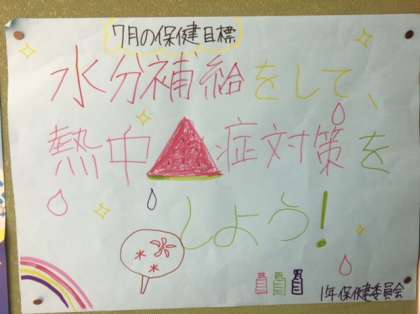 7月の保健目標
水分補給をして、
熱中症対策を
しよう!
1年保健委員会